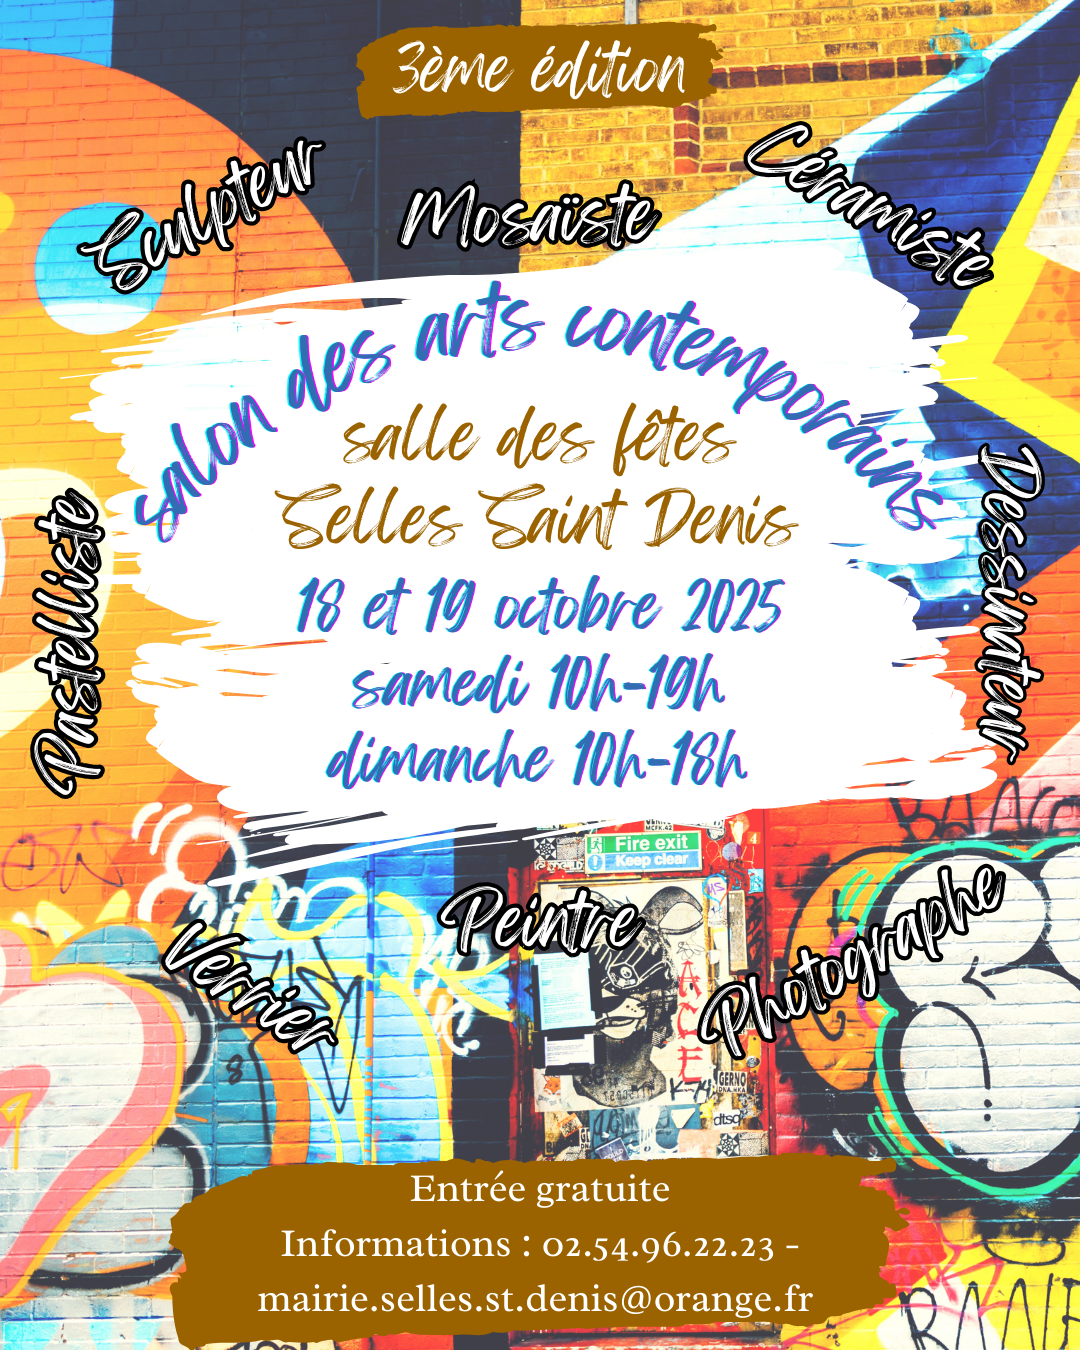 3ème édition
Sculpteur
Mosaïste
Céramiste
salon des arts contemporains
salle des fêtes
Selles Saint Denis
18 et 19 octobre 2025
samedi 10h-19h
dimanche 10h-18h
Pastelliste
Dessinateur
Fire exit
Keep clear
Verrier
Peintre
Photographe
GERNO
dtsq
Entrée gratuite
Informations : 02.54.96.22.23 -
mairie.selles.st.denis@orange.fr